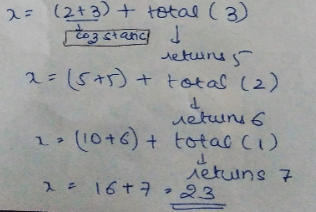 x = (2+3) + total (3)
coz static
returns 5
x = (5+5) + total (2)
returns 6
x = (10+6) + total (1)
returns 7
x = 16+7 = 23